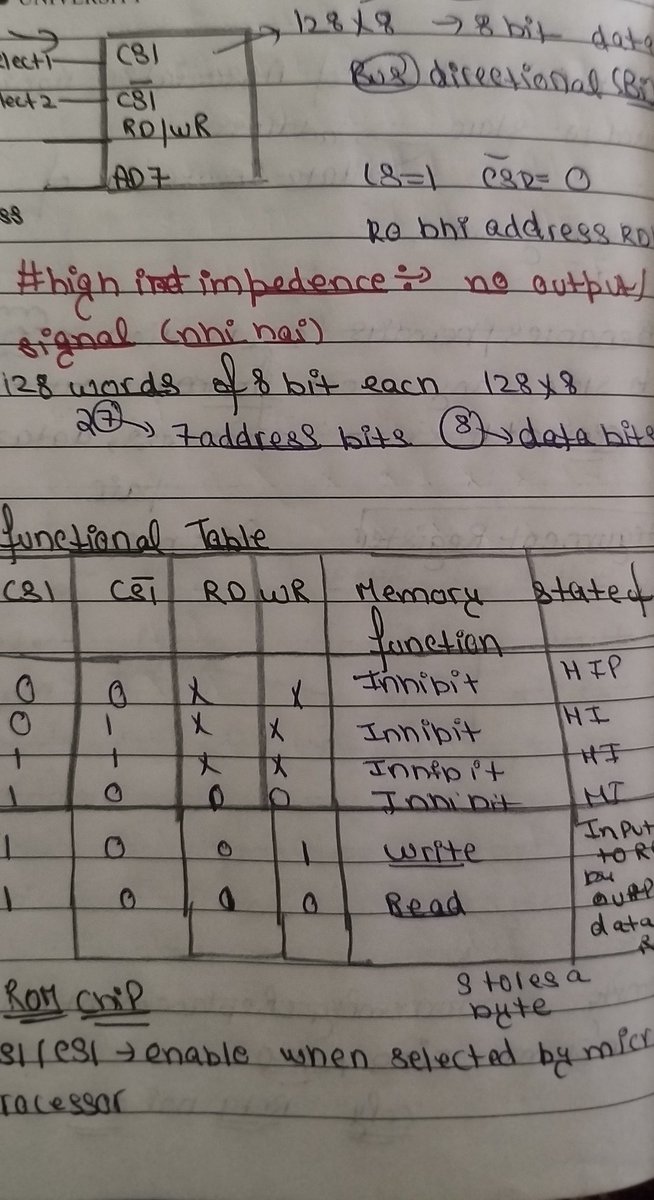 128 x 8 → 8 bit data
elect1 CS1
Bus directional (Bi
lect2 C̅S̅1̅
RD/WR
CS=1 C̅S̅D̅= 0
AD7
ss
RO bhi address RD
#high inct impedence ÷> no output/
signal (nhi hai)
128 words of 8 bit each 128x8
2⑦ → 7 address bits ⑧ → data bits
functional Table
CS1 CS̅1̅ RD WR Memory stateof
function
0 0 x x Innibit HIP
0 1 x x Innibit HI
1 1 x x Innibit HI
1 0 0 0 Innibit HI
1 0 0 1 write Input
to R
1 0 0 Read
data
R
stoles a
ROM Chip byte
S1/CS1 → enable when selected by micr
rocessor